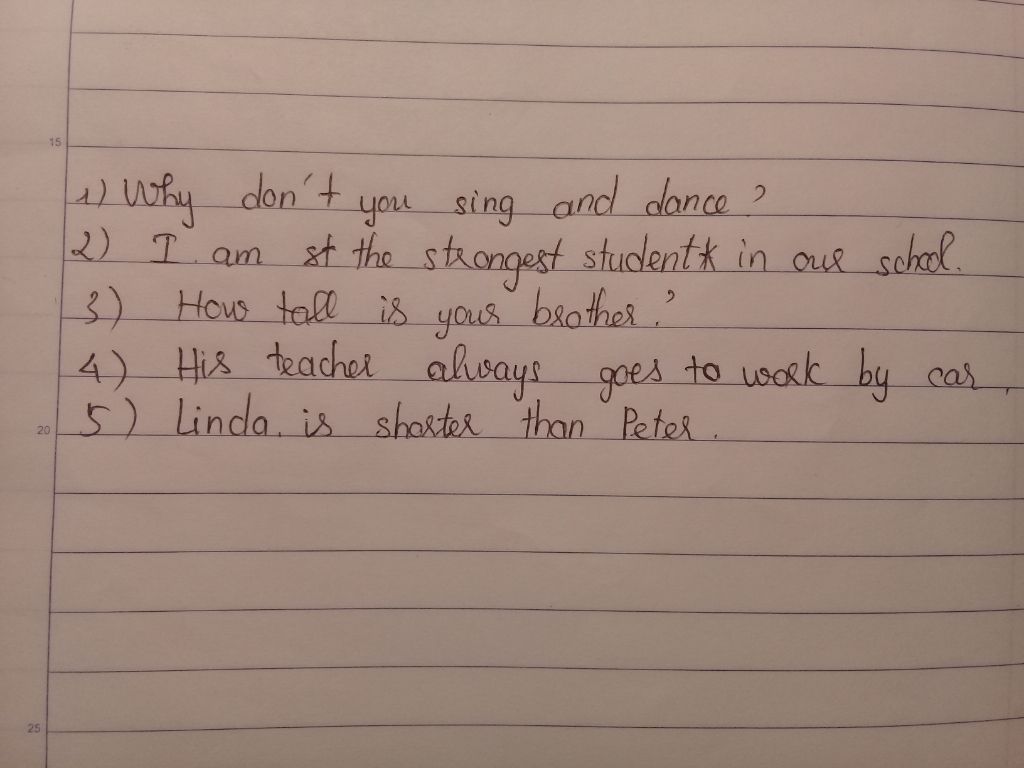 15
1) Why don't you sing and dance?
2) I am st the strongest student in our school.
3) How tall is your brother?
4) His teacher always goes to work by car.
20 5) Linda is shorter than Peter.
25